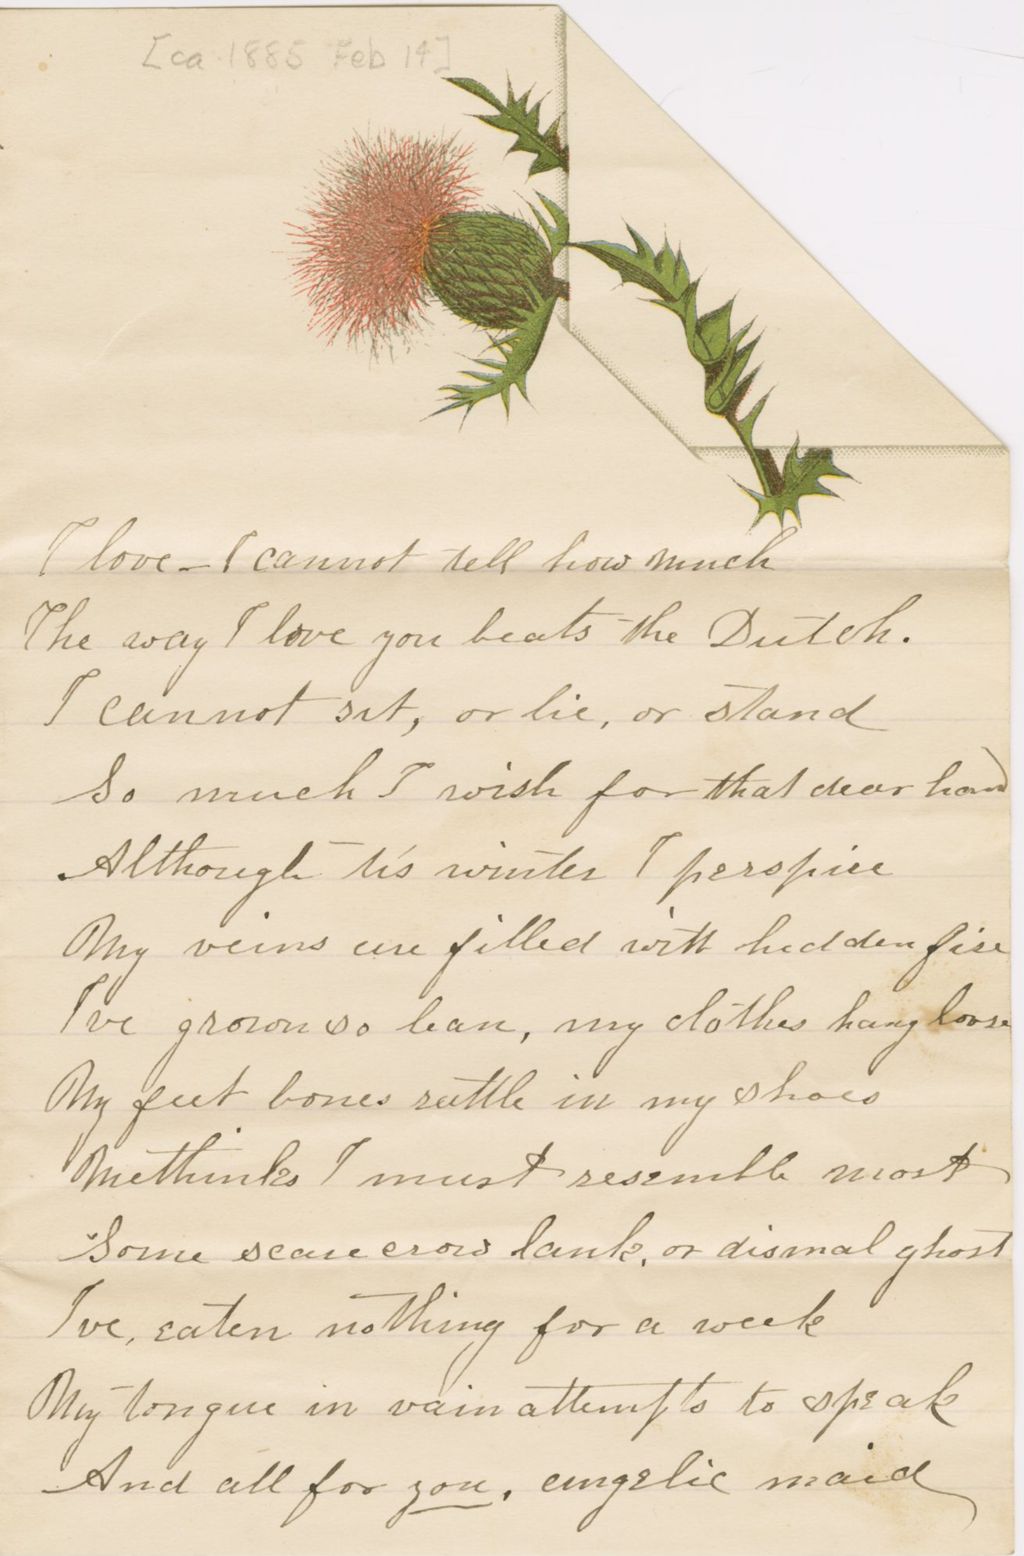 [ca 1885 Feb 14]
I love – I cannot tell how much
The way I love you beats the Dutch.
I cannot sit, or lie, or stand
So much I wish for that dear hand
Although 'tis winter I perspire
My veins are filled with hidden fire
I've grown so lean, my clothes hang loose
My feet bones rattle in my shoes
Methinks I must resemble most
Some scare crow lank, or dismal ghost
I've, eaten nothing for a week
My tongue in vain attempts to speak
And all for you, angelic maid